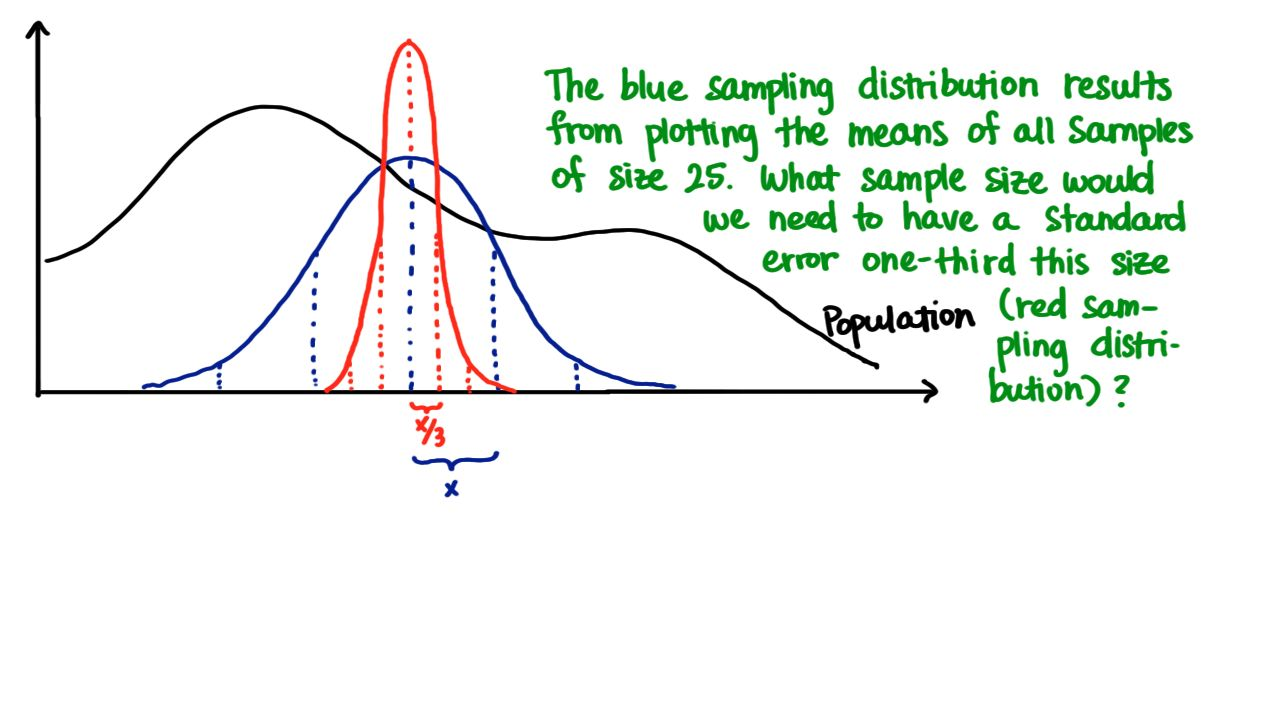 The blue sampling distribution results
from plotting the means of all samples
of size 25. What sample size would
we need to have a standard
error one-third this size
(red sam-
pling distri-
bution)?
Population
x/3
x